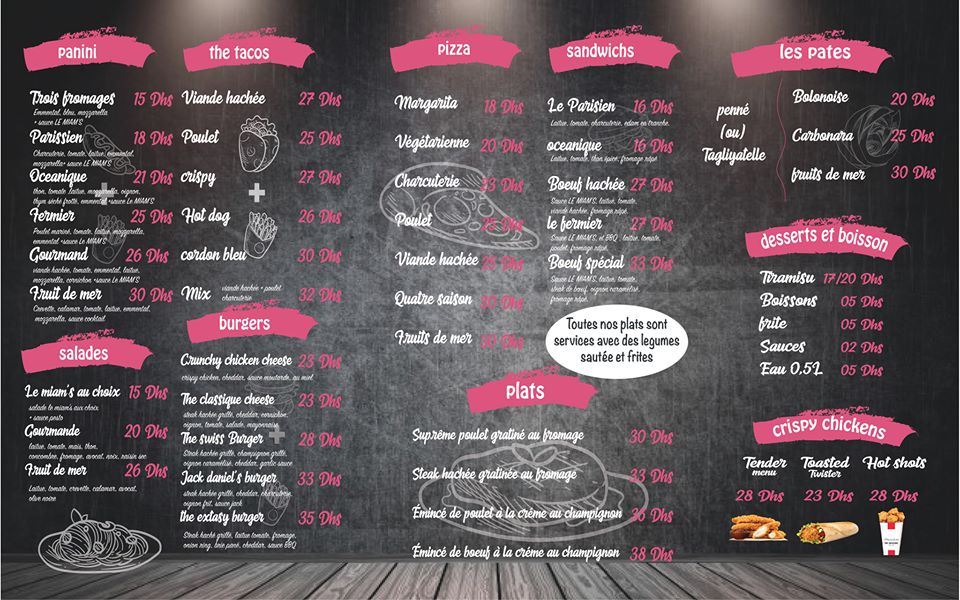 panini
Trois fromages 15 Dhs
Emmental, bleu, mozzarella
+ sauce LE MIAM'S
Parissien 18 Dhs
Charcuterie, tomate, laitue, emmental,
mozzarella+ sauce LE MIAM'S
Oceanique 21 Dhs
thon, tomate ,laitue, mozzarella, oignon,
thym séché frotté, emmental +sauce Le MIAM'S
Fermier 25 Dhs
Poulet mariné, tomate, laitue, mozzarella,
emmental +sauce Le MIAM'S
Gourmand 26 Dhs
viande hachée, tomate, emmental, laitue,
mozzarella, cornichon +sauce Le MIAM'S
Fruit de mer 30 Dhs
Crevette, calamar, tomate, laitue, emmental,
mozzarella, sauce cocktail
salades
Le miam's au choix 15 Dhs
salade le miam's aux choix
+ sauce pesto
Gourmande 20 Dhs
laitue, tomate, maïs, thon,
concombre, fromage, avocat, noix, raisin sec
Fruit de mer 26 Dhs
Laitue, tomate, crevette, calamar, avocat,
olive noire
the tacos
Viande hachée 27 Dhs
Poulet 25 Dhs
crispy 27 Dhs
Hot dog 26 Dhs
cordon bleu 30 Dhs
Mix viande hachée + poulet
charcuterie 32 Dhs
burgers
Crunchy chicken cheese 23 Dhs
crispy chicken, cheddar, sauce moutarde, au miel
The classique cheese 23 Dhs
steak hachée grillé, cheddar, cornichon,
oignon, tomate, salade, mayonnaise
The swiss Burger 28 Dhs
Steak hachée grillé, champignon grillé,
oignon caramelisé, cheddar, garlic sauce
Jack daniel's burger 33 Dhs
steak hachée grillé, cheddar, charcuterie,
oignon frit, sauce jack
the extasy burger 35 Dhs
Steak haché grillé, laitue, tomate, fromage,
onion ring, brie pané, cheddar, sauce BBQ
pizza
Margarita 18 Dhs
Végétarienne 20 Dhs
Charcuterie 23 Dhs
Poulet 25 Dhs
Viande hachée 25 Dhs
Quatre saison Dhs
Fruits de mer Dhs
sandwichs
Le Parisien 16 Dhs
Laitue, tomate, charcuterie, edam en tranche.
oceanique 16 Dhs
Laitue, tomate, thon épice, fromage râpé.
Boeuf hachée 27 Dhs
Sauce LE MIAM'S, laitue, tomate,
viande hachée, fromage râpé.
le fermier 27 Dhs
Sauce LE MIAM'S, et BBQ , laitue, tomate,
poulet, fromage râpé.
Boeuf spécial 33 Dhs
Sauce LE MIAM'S, laitue, tomate,
steak de bœuf, oignon caramelisé,
fromage râpé.
Toutes nos plats sont
services avec des legumes
sautée et frites
plats
Suprême poulet gratiné au fromage 30 Dhs
Steak hachée gratinée au fromage 33 Dhs
Émincé de poulet à la crème au champignon 36 Dhs
Émincé de boeuf à la créme au champignon 38 Dhs
les pates
penné
(ou)
Tagliyatelle
Bolonoise 20 Dhs
Carbonara 25 Dhs
fruits de mer 30 Dhs
desserts et boisson
Tiramisu 17/20 Dhs
Boissons 05 Dhs
frite 05 Dhs
Sauces 02 Dhs
Eau 0,5L 05 Dhs
crispy chickens
Tender
menu
28 Dhs
Toasted
Twister
23 Dhs
Hot shots
28 Dhs